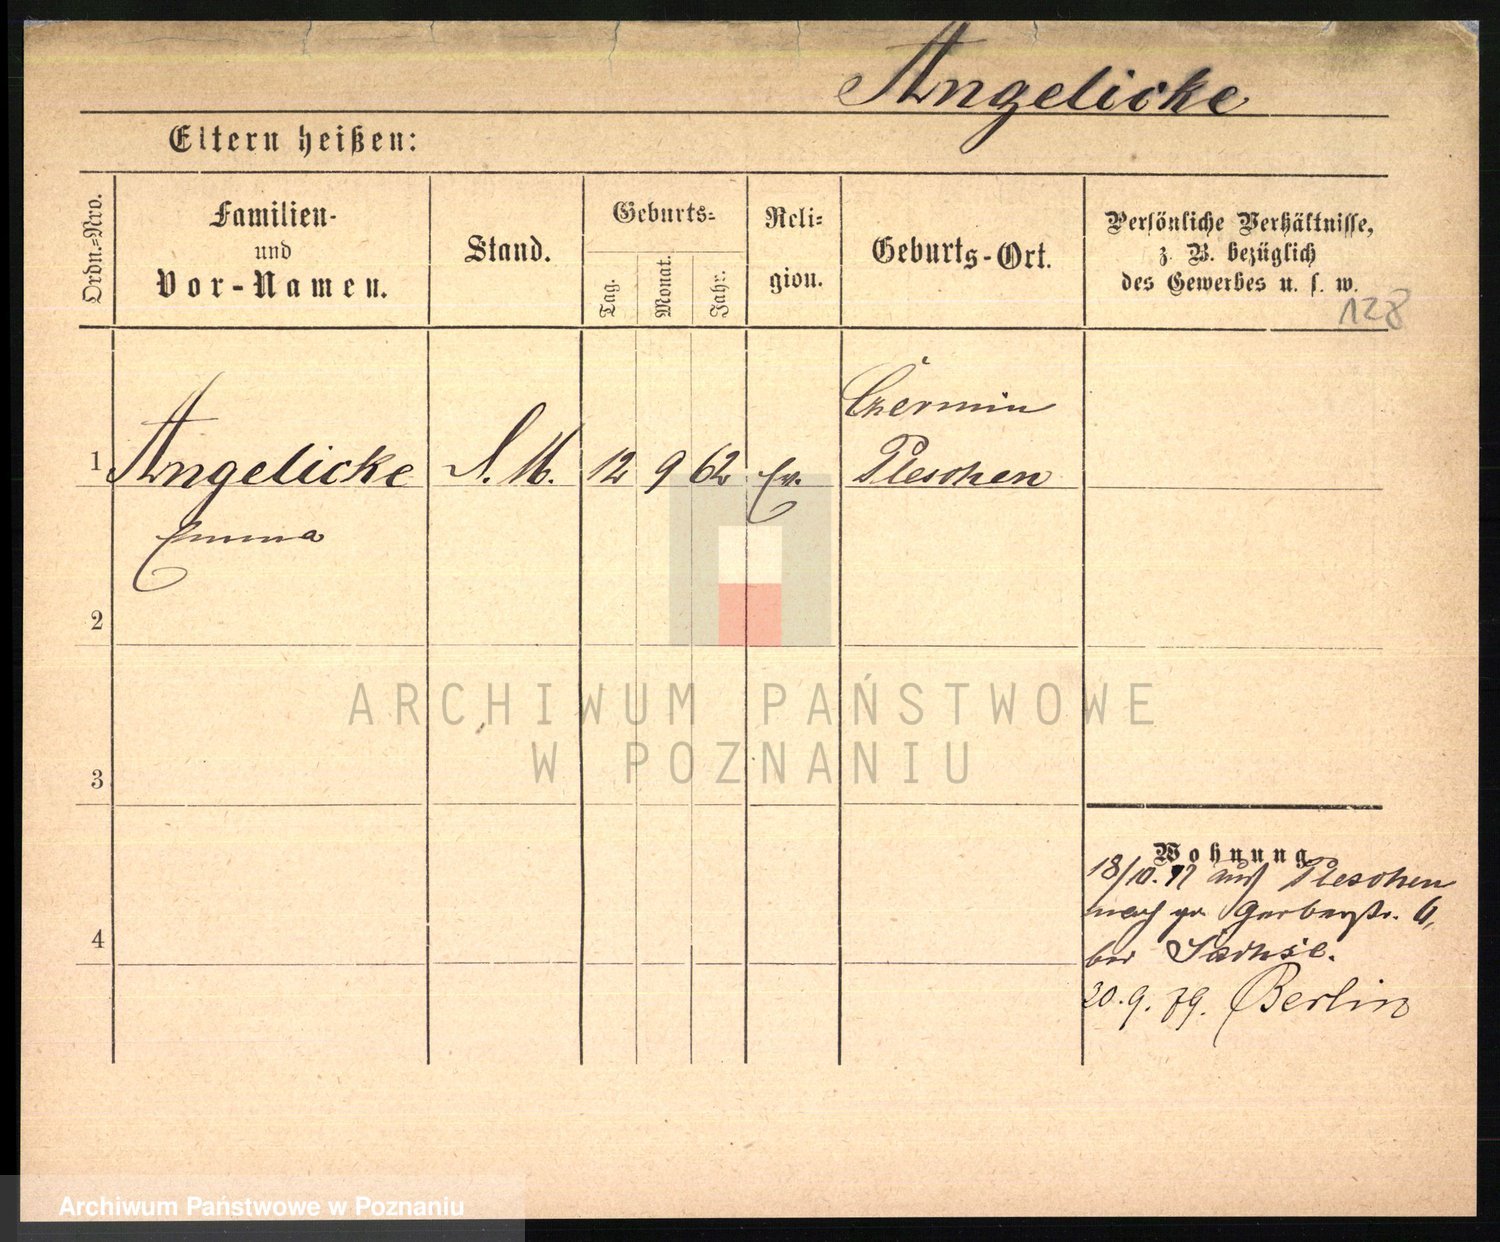 Angelicke
Eltern heißen:
Ordn.=Nro.
Familien-
und
Vor-Namen.
Stand.
Geburts=
Tag.
Monat.
Jahr.
Reli=
gion.
Geburts-Ort.
Persönliche Verhältnisse,
z. B. bezüglich
des Gewerbes u. s. w.
128
1 Angelicke
Emma
D. M. 12 9 62 Ev.
Czermin
Pleschen
2
3
4
ARCHIWUM PAŃSTWOWE
W POZNANIU
Wohnung
18/10. 77 aus Pleschen
nach gr. Gerberstr. 6,
bei Sachse.
20. 9. 79. Berlin
Archiwum Państwowe w Poznaniu